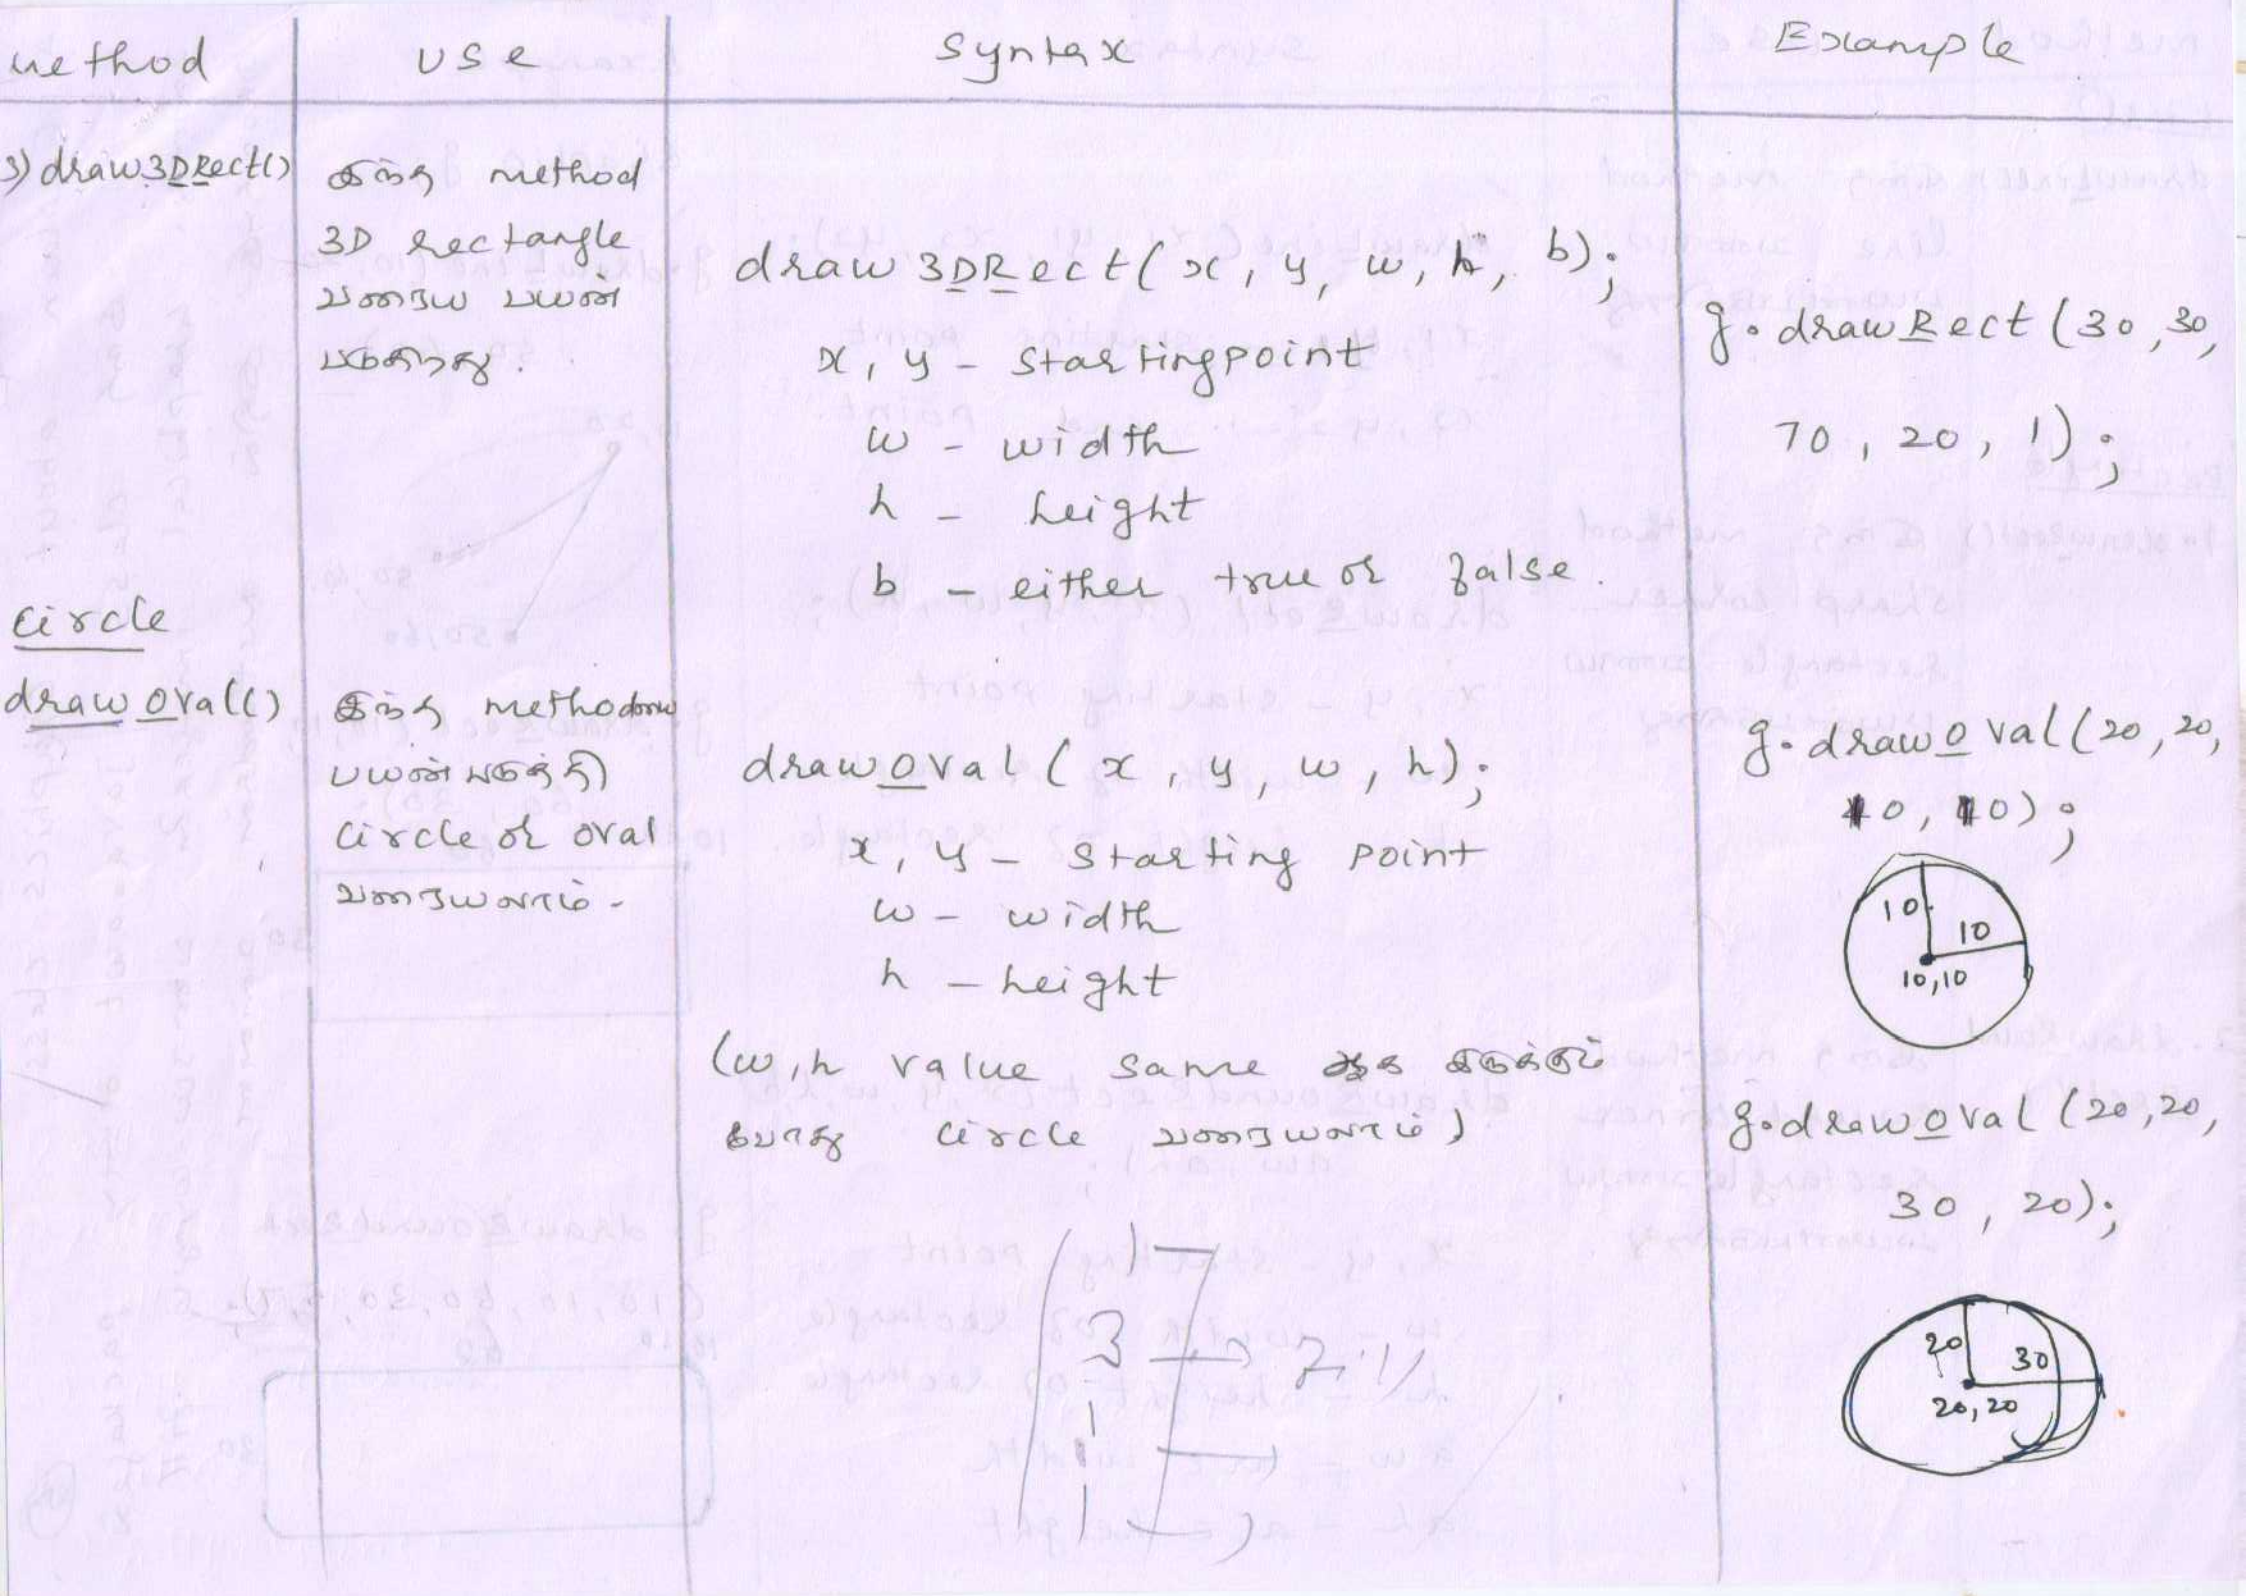 method use syntax Example
3) draw3DRect() இந்த method
3D rectangle
வரைய பயன்
படுகிறது.
draw3DRect(x, y, w, h, b);
x, y - startingpoint
w - width
h - height
b - either true or false.
g.drawRect(30,30,
70, 20, 1);
circle
drawOval() இந்த method
பயன்படுத்தி
circle or oval
வரையலாம்.
drawOval(x, y, w, h);
x, y - starting point
w - width
h - height
(w,h value same இருக்கும்
போது circle வரையலாம்)
g.drawOval(20,20,
10, 10);
10
10
10,10
g.drawOval(20,20,
30, 20);
20
30
20,20